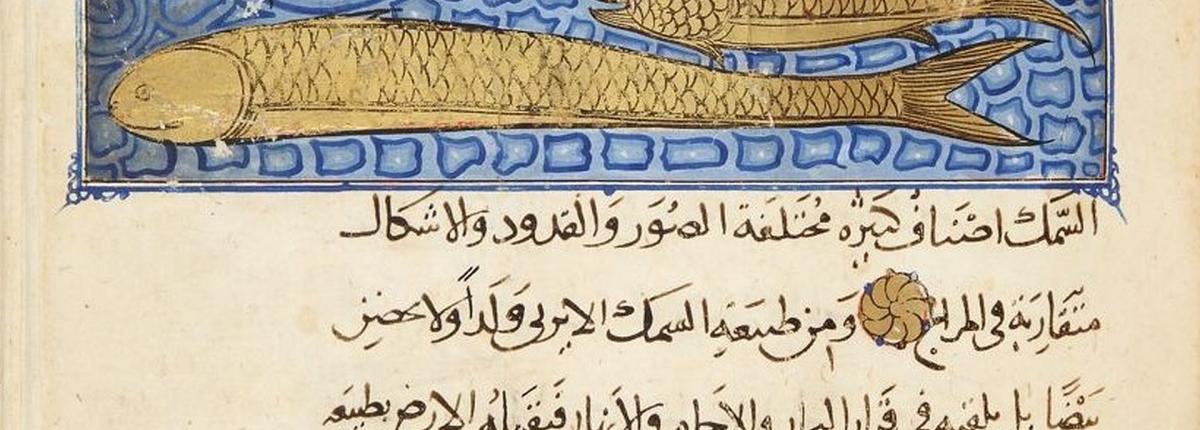 السّمك اصْنَافُ كثيرْه مُختَلفة الصُوَر وَالقدود والاشكال
متقارِبَة فى المزاج وَمن طبيعَةِ السمك الا يربى وَلَداً ولا يحضن
بَيْضًا بل يلقيه فى قَرار البحار والاجام والانهار فتقبله الارض بطبيعه